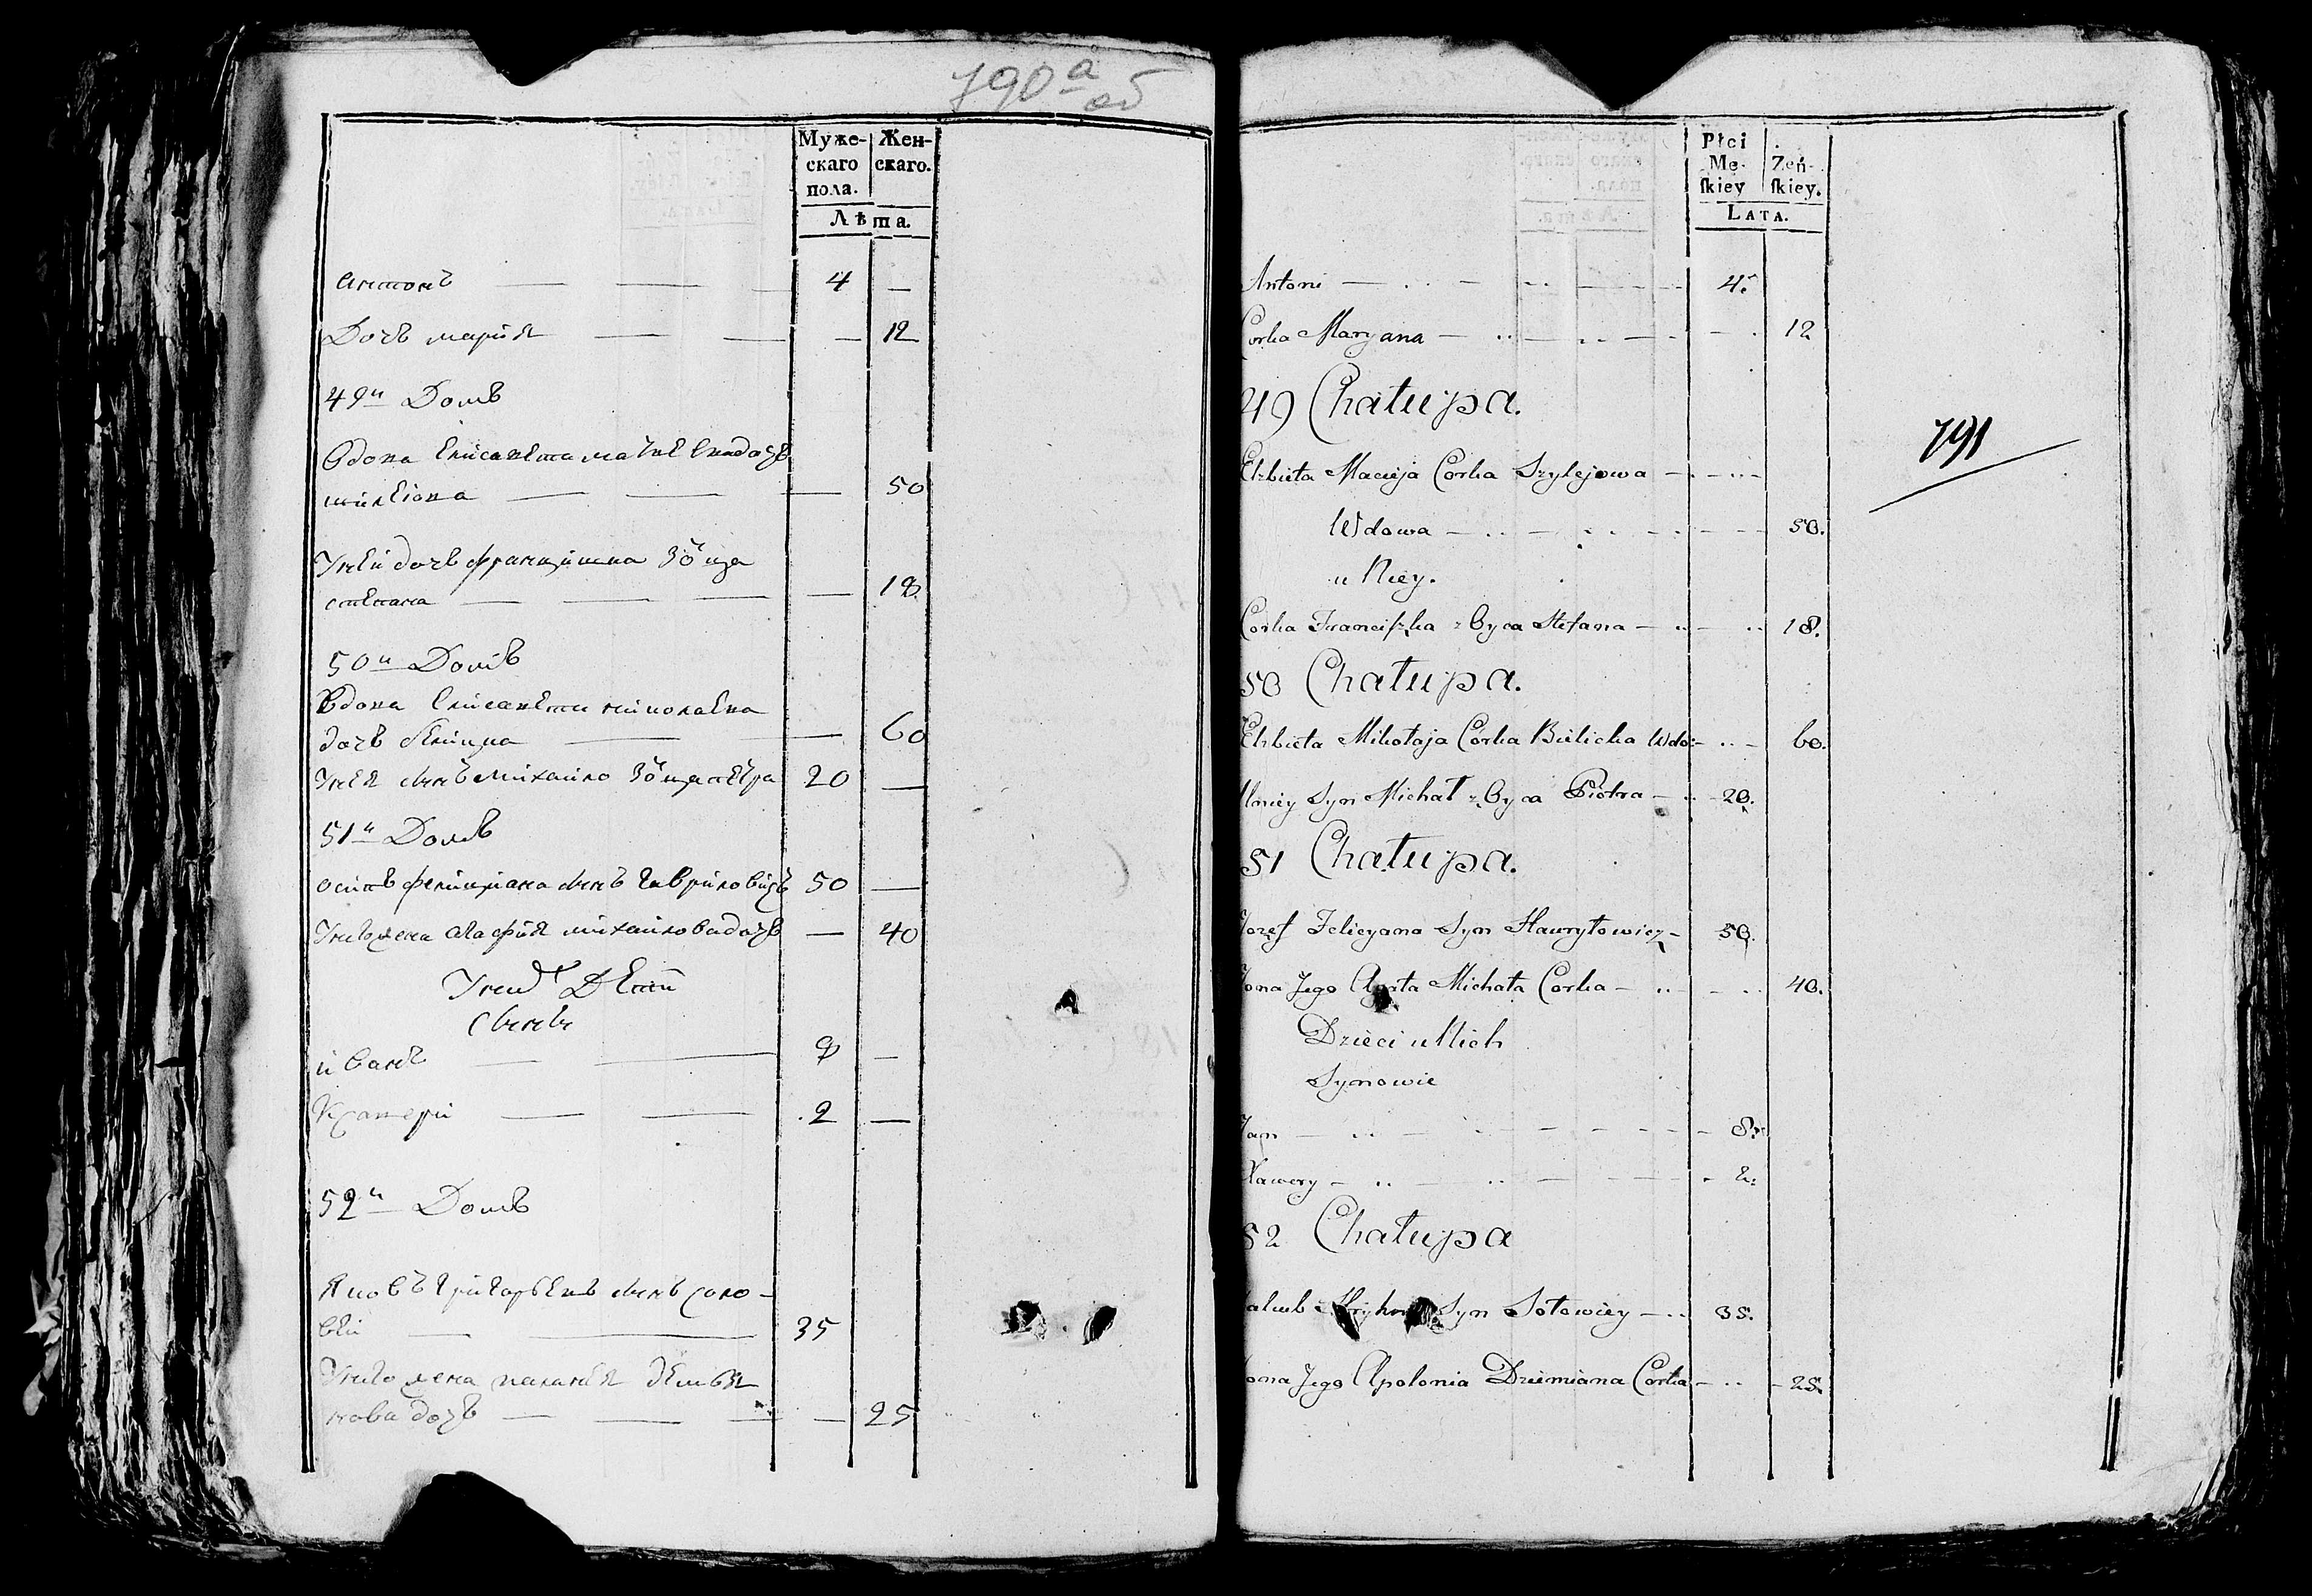 790 а об
Муже-
скаго
пола.
Жен-
скаго.
Лѣта.
Антонъ — — — 4 —
Дочь марія — — — 12
49й Домъ
Вдова Елисавета матвеева дочь
шилѣiова — — — 50
Унеи дочь францишка зо́ ица
степана — — — — 18
50й Домъ
Вдова Елисавета николаева
дочь белицка — — 60
Унея сынъ михайло зо́ ица петра 20 —
51й Домъ
осипъ фелиціана сынъ гавриловичъ 50 —
Унего жена агафія михайлова дочь — 40
Унихъ Дети
сыны
иванъ — — 8 —
Ксаверій — — 2 —
52й Домъ
Яковъ григорьевъ сынъ соло-
вей — — 35
Унего жена паланея демья
нова дочь — — — — 25
Płci
Mę-
ſkiey
Zeń-
ſkiey.
LATA.
Antoni — 4.
Corka Maryana — 12
49 Chałupa.
791
Elzbieta Macieja Corka Szylejowa —
Wdowa — 50.
u Niey.
Corka Franciſzka z Oyca Stefana — 18.
50 Chałupa.
Elzbieta Mikołaja Corka Bielicka Wdo: — 60.
Uniey Syn Michał z Oyca Piotra — 20.
51 Chałupa.
Jozef Felicyana Syn Hawryłowicz — 50.
Zona Jego Agata Michała Corka — 40.
Dzieci u Nich
Synowie
Jan — 8.
Xawery — 2.
52 Chałupa
Jakub Syn Sołowiey — 35.
Zona Jego Apolonia Dziemiana Corka — 25.